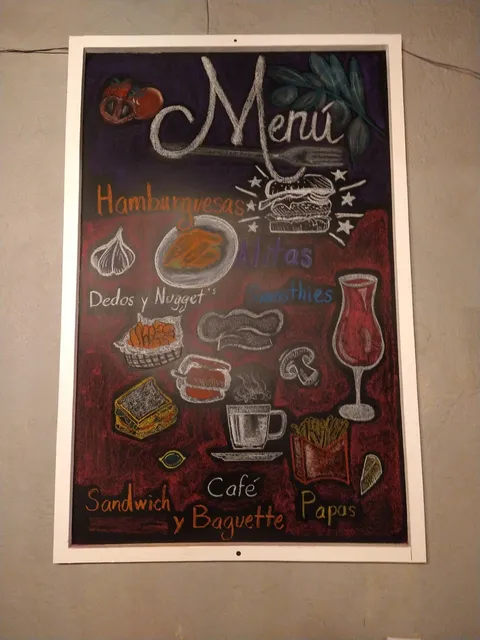 Menú
Hamburguesas
Alitas
Dedos y Nuggets
Smoothies
Café
Sandwich
y Baguette
Papas